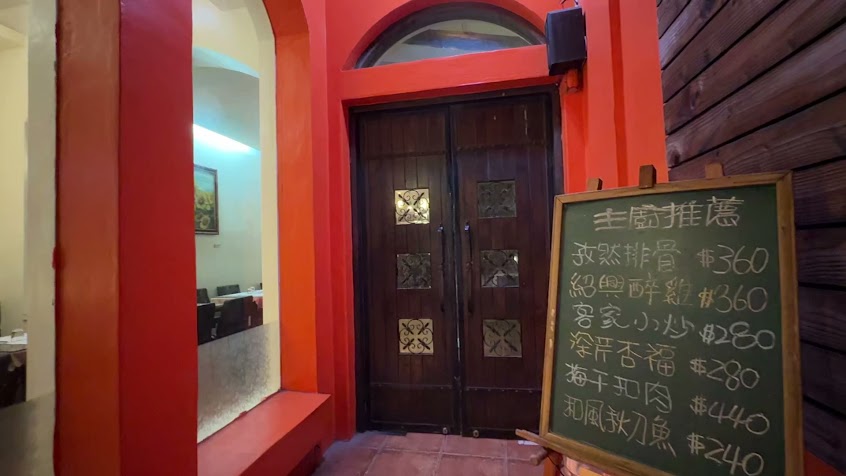 主廚推薦
孜然排骨 $360
紹興醉雞 $360
客家小炒 $280
深芹杏福 $280
梅干扣肉 $440
和風秋刀魚 $240